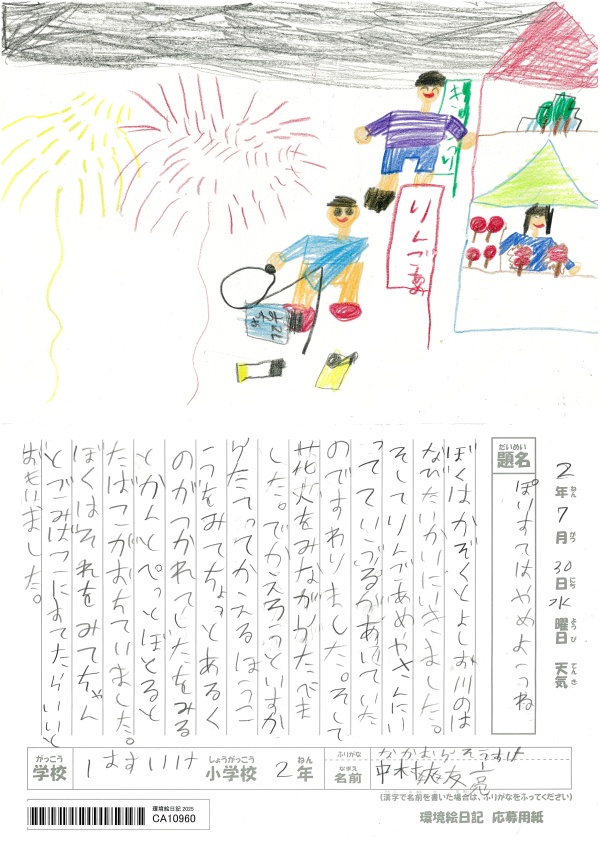 りんごあめ
2年7月30日水曜日 天気
ねん がつ にち よう び てんき
だいめい
題名
ぽいすてはやめようね
ぼくはかぞくとよしお川のは
なびたいかいにいきました。
そしてりんごあめやさんにい
ってていぶるがあいていた
のですわりました。そして
花火をみながらかたべま
した。でかえろっといすか
らたてってかえるほうこ
うをみてちょっとあるく
のがつかれてしたをみる
とかんとぺっとぼとると
たばこがおちていました。
ぼくはそれをみてちゃん
とごみばこにすてたらいいと
おもいました。
がっこう しょうがっこう ねん
学校 はすいけ 小学校 2年
ふりがな なかむらそうすけ
なまえ
名前 中村
(漢字で名前を書いた場合は、ふりがなをふってください)
環境絵日記 2025
CA10960
環境絵日記 応募用紙